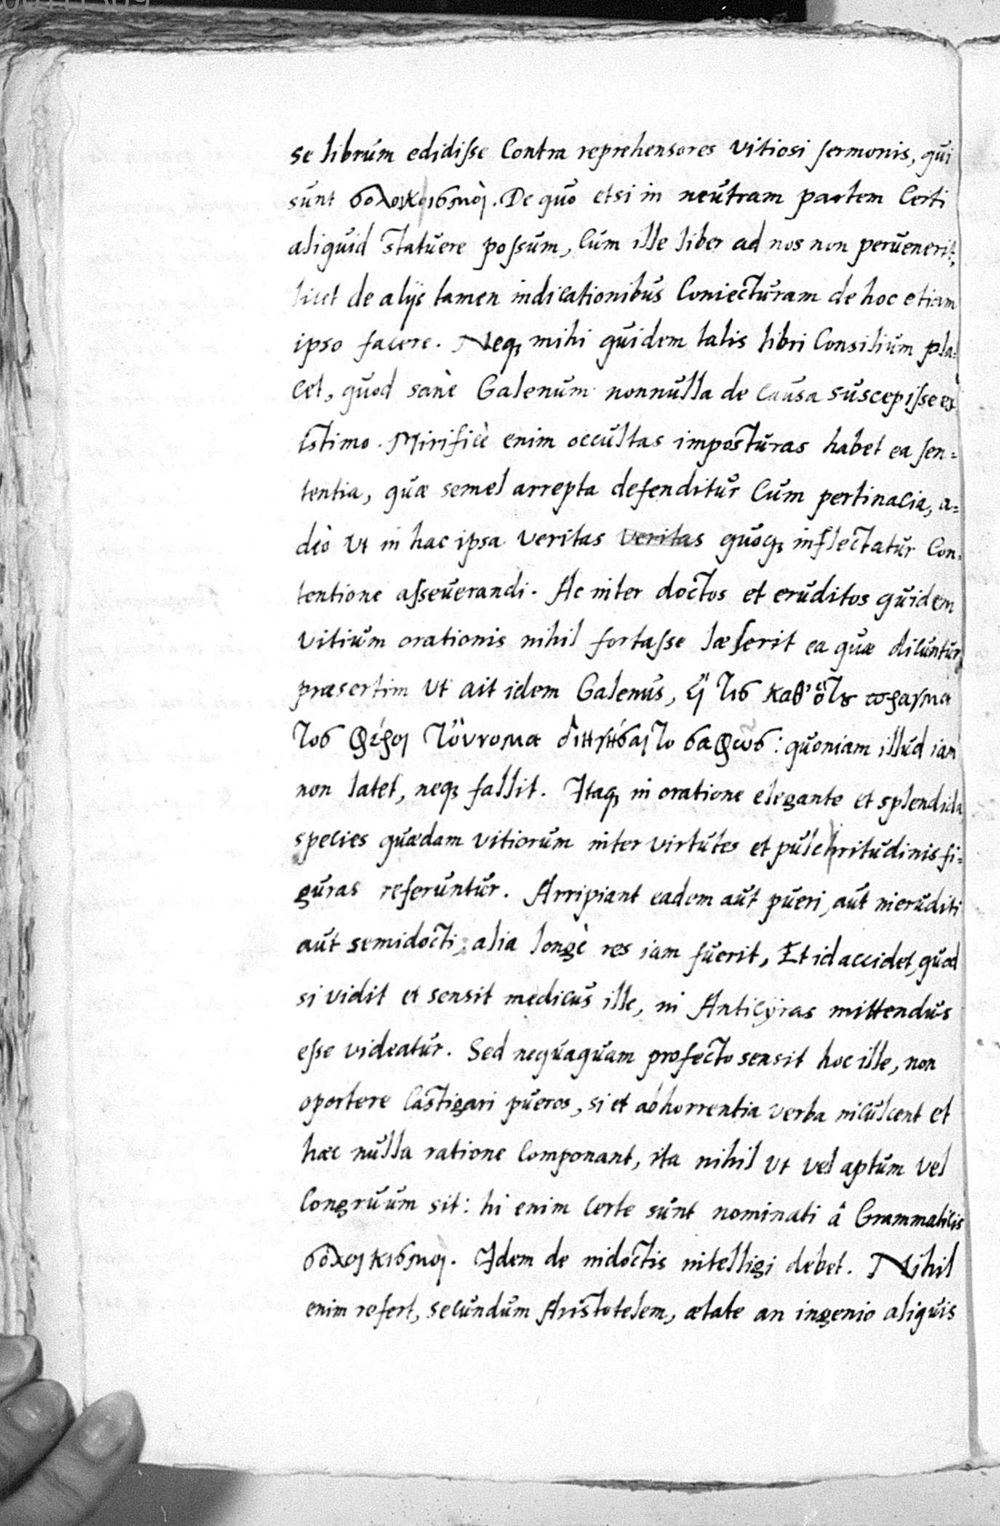 se librum edidisse contra reprehensores vitiosi sermonis, qui
sunt σολοικισμοὶ. De quo etsi in neutram partem certi
aliquid statuere possum, cum ille liber ad nos non peruenerit,
licet de alijs tamen indicationibus coniecturam de hoc etiam
ipso facere. Neq; mihi quidem talis libri consilium pla-
cet, quod sanè Galenum nonnulla de causa suscepisse ex
istimo. Mirificè enim occultas imposturas habet ea sen-
tentia, quæ semel arrepta defenditur cum pertinacia, a-
deò ut in hac ipsa veritas veritas quoq; inflectatur con-
tentione asseuerandi. Ac inter doctos et eruditos quidem
vitium orationis nihil fortasse læserit ea quæ dicuntur
præsertim ut ait idem Galenus, τις καθ' ὅτου πράγμα
τος φέρει τοὔνομα διηγήσαιτο σαφῶς: quoniam illud iam
non latet, neq; fallit. Itaq; in oratione elegante et splendida
species quædam vitiorum inter virtutes et pulchritudinis fi-
guras referuntur. Arripiant eadem aut pueri, aut ineruditi
aut semidocti, alia longè res iam fuerit, Et id accidet, quod
si vidit et sensit medicus ille, in Anticÿras mittendus
esse videatur. Sed nequaquam profecto sensit hoc ille, non
oportere castigari pueros, si et abhorrentia verba inculcent et
hæc nulla ratione componant, ita nihil ut vel aptum vel
congruum sit: hi enim certe sunt nominati â Grammaticis
σόλοικισμοι. Idem de indoctis intelligi debet. Nihil
enim refert, secundum Aristotelem, ætate an ingenio aliquis